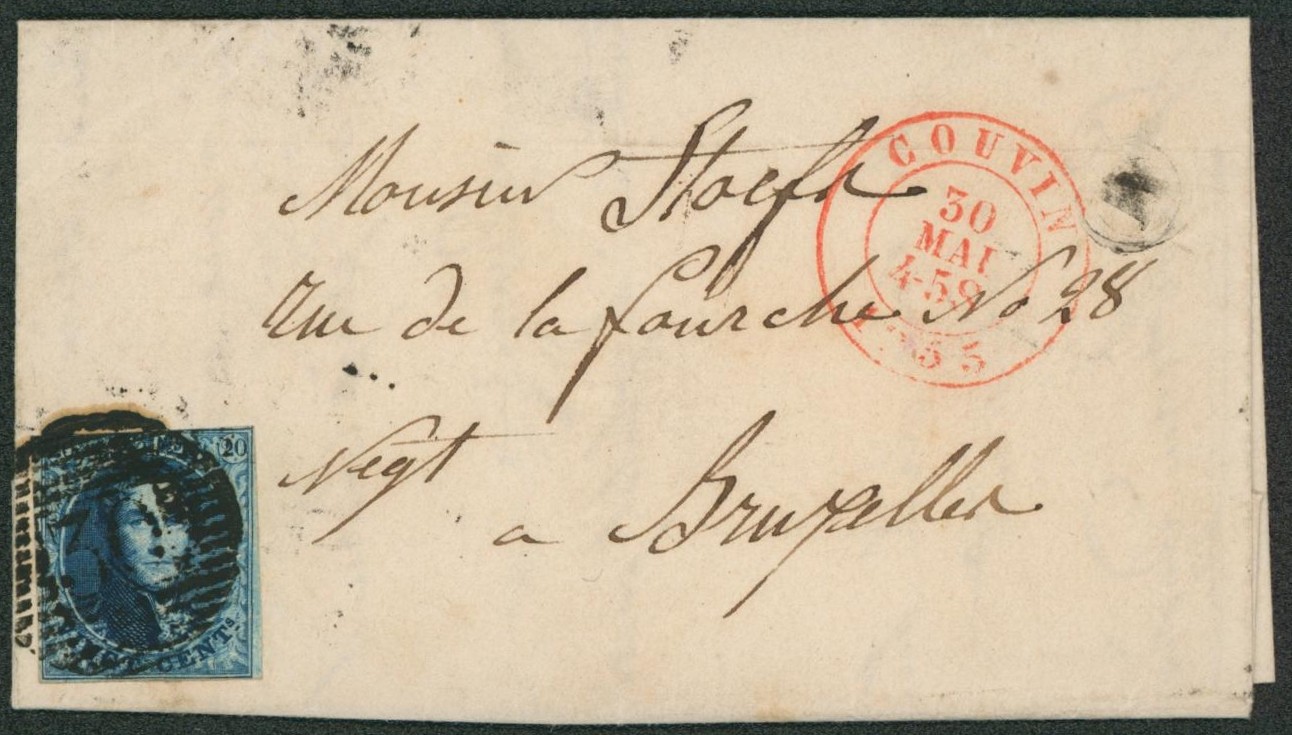 Monsieur Stoefs
rue de la fourche No 28
Negt
a Bruxelles
COUVIN
30
MAI
4-5S
1855
20
VINGT CENTS.